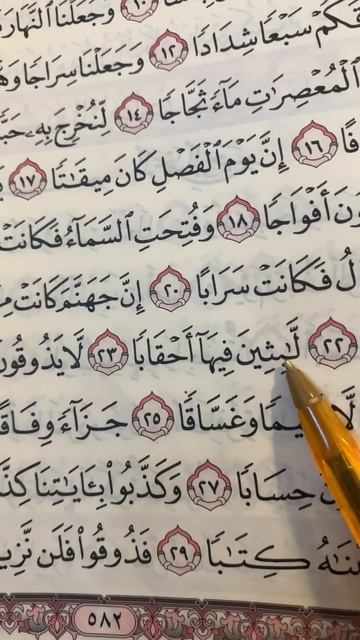 ١٠ وَجَعَلْنَا ٱلنَّهَارَ
سَبْعًا شِدَادًا ١٢ وَجَعَلْنَا سِرَاجًا
ٱلْمُعْصِرَٰتِ مَآءً ثَجَّاجًا ١٤ لِّنُخْرِجَ بِهِۦ
١٦ إِنَّ يَوْمَ ٱلْفَصْلِ كَانَ مِيقَٰتًا ١٧
أَفْوَاجًا ١٨ وَفُتِحَتِ ٱلسَّمَآءُ فَكَانَتْ
فَكَانَتْ سَرَابًا ٢٠ إِنَّ جَهَنَّمَ كَانَتْ
٢٢ لَّٰبِثِينَ فِيهَآ أَحْقَابًا ٢٣ لَّا يَذُوقُونَ
وَغَسَّاقًا ٢٥ جَزَآءً وِفَاقًا
حِسَابًا ٢٧ وَكَذَّبُوا۟ بِـَٔايَٰتِنَا
كِتَٰبًا ٢٩ فَذُوقُوا۟ فَلَن
٥٨٢